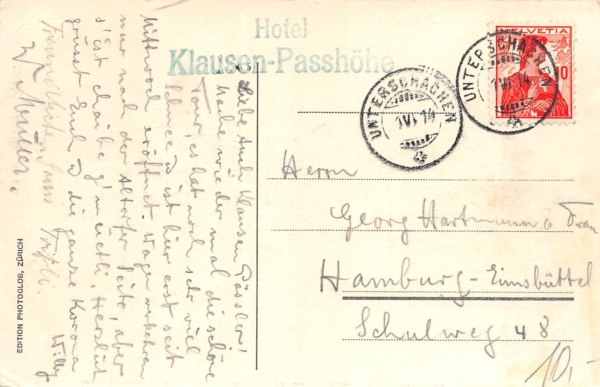 Hotel
Klausen-Passhöhe
HELVETIA
10
UNTERSCHÄCHEN
UNTERSCHÄCHEN
1 VI 14
Liebe Klausen
Habe wieder mal die schöne
Tour, es hat noch sehr viel
Schnee & ist hier erst seit
Mittwoch eröffnet. Wagen verkehren
nur nach der Altorfer Seite, aber
s'ist chaibe g'müetli. Herzlich
grüsst Euch & die ganze Korona
Willy
Freundlichen Gruss
W. Müller.
Herrn
Georg Hartmann & Frau
Hamburg-Eimsbüttel
Schulweg 48
10,-
EDITION PHOTOGLOB, ZÜRICH